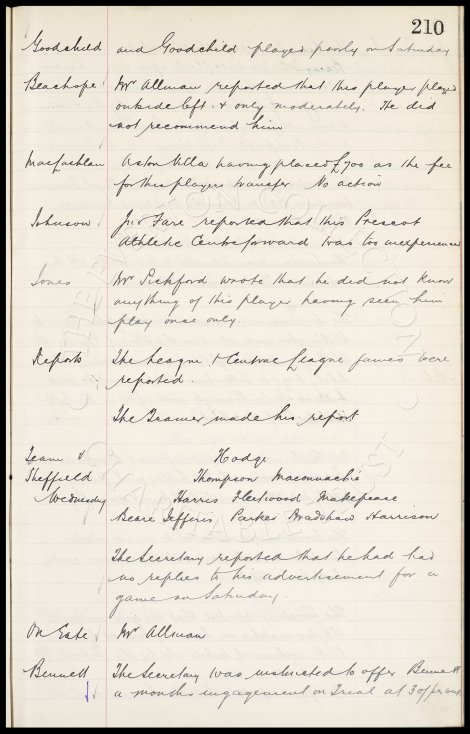 210
Goodchild and Goodchild played poorly on Saturday
Beachope Mr Allman reported that this player played
outside left & only moderately. He did
not recommend him
MacLachlan Aston Villa having placed £700 as the fee
for this players transfer. No action
Johnson Jno Fare reported that this Prescot
Athletic Centreforward was too inexperienced
Jones Mr Pickford wrote that he did not know
anything of this player having seen him
play once only.
Reports The League & Central League games were
reported.
The Trainer made his report
Team v Hodge
Sheffield Thompson Maconnachie
Wednesday Harris Fleetwood Makepeace
Beare Jefferis Parker Bradshaw Harrison
The Secretary reported that he had had
no replies to his advertisement for a
game on Saturday.
On Gate Mr Allman
Bennett The Secretary was instructed to offer Bennett
a months engagement on Trial at 30/ per week